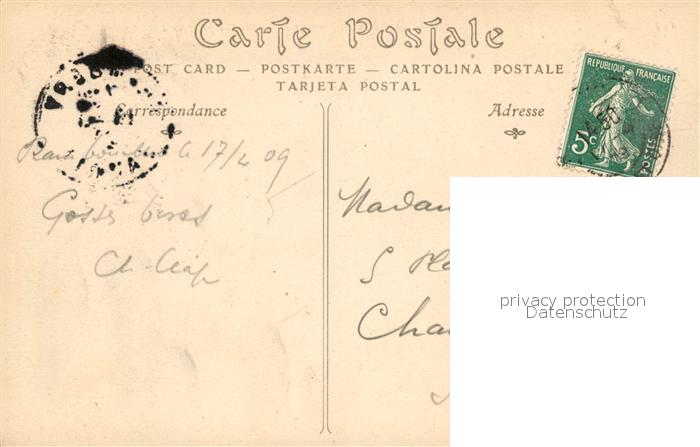 Carte Postale
POST CARD — POSTKARTE — CARTOLINA POSTALE
TARJETA POSTAL
Correspondance
Adresse
REPUBLIQUE FRANÇAISE
5c
POSTES
Rambouillet le 17/4 09
Madam
5 Pla
Cha
privacy protection
Datenschutz